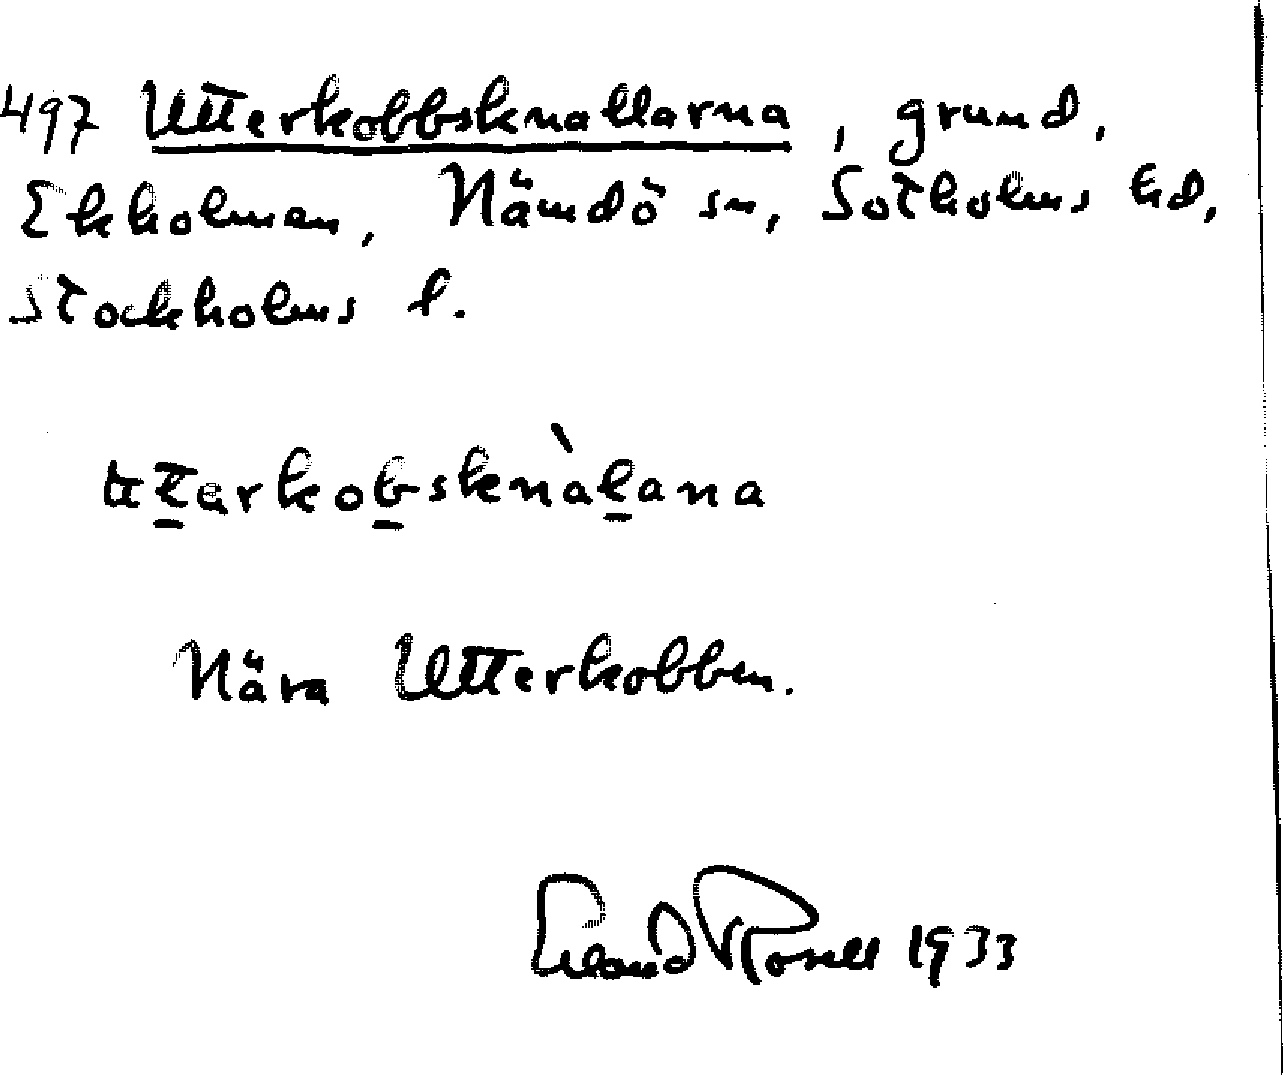 497 Utterkobbsknallarna, grund,
Ekholmen, Nämdö sn, Sotholms hd,
Stockholms l.
ut̲ərkob̲sknàl̲ana
Nära Utterkobben.
Erland Rosell 1933